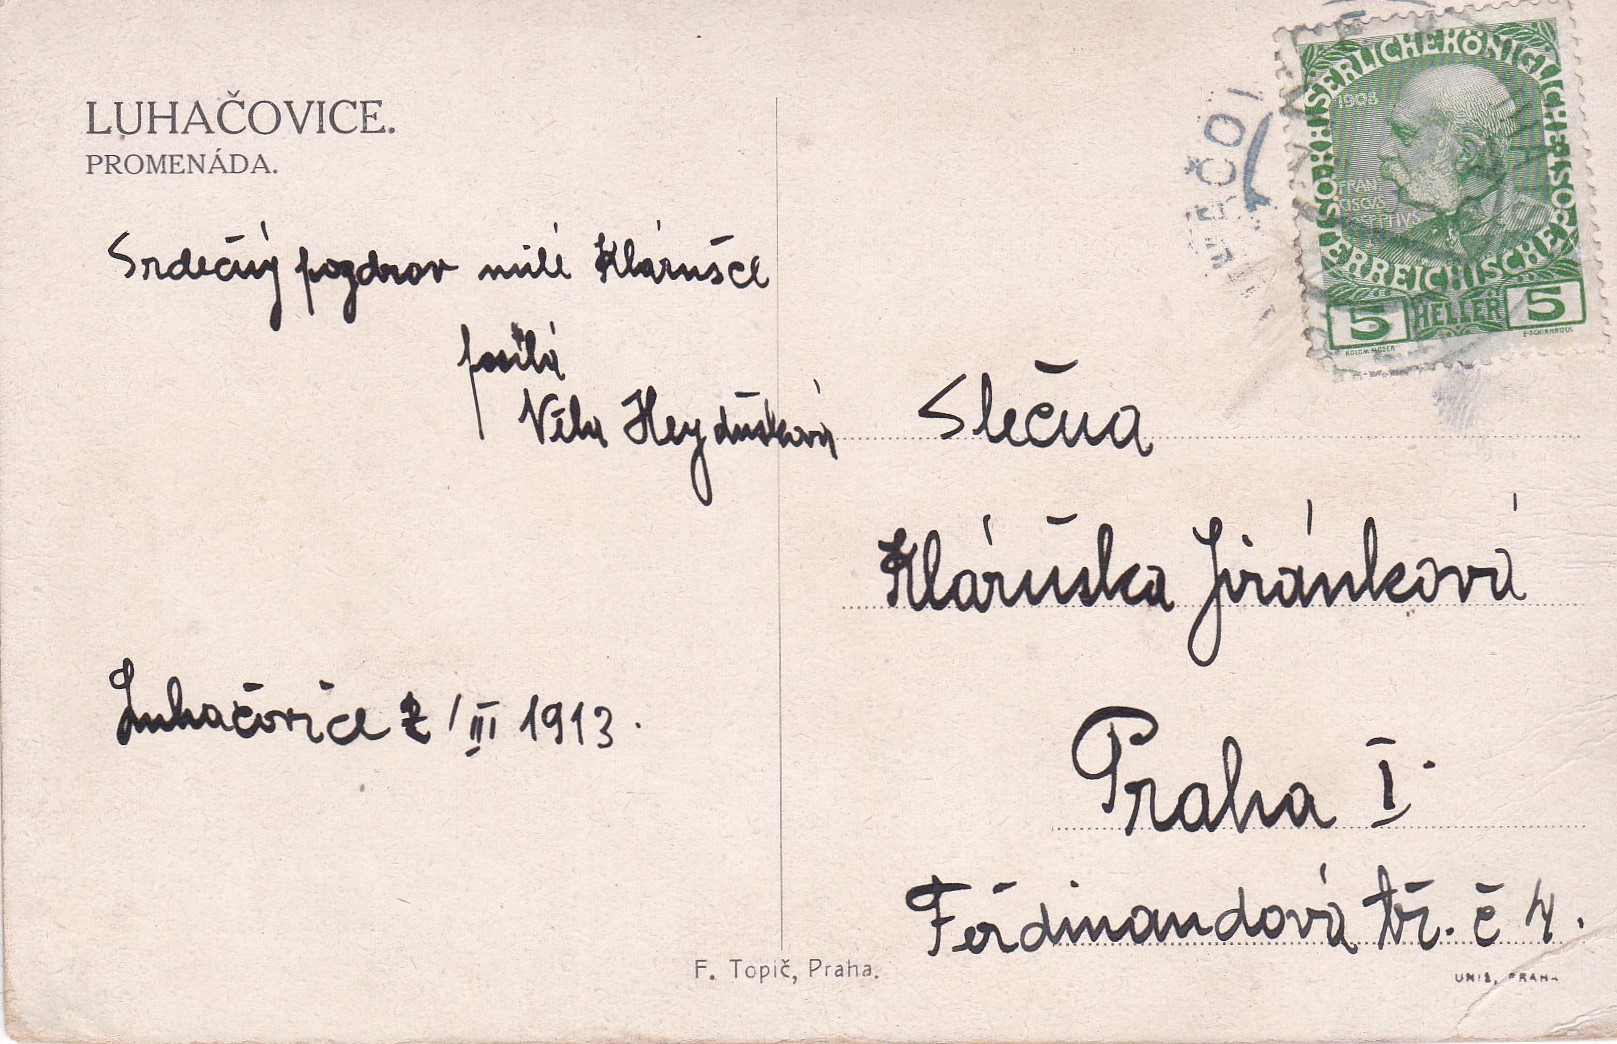 LUHAČOVICE.
PROMENÁDA.
Srdečný pozdrov milé Klárušce
posílá
Věla Heydušková
Luhačovice 2/III 1913.
F. Topič, Praha.
KAISERLICHE KÖNIGLICHE
ÖSTERREICHISCHE
1908
FRAN
CISCVS
IOSEPHVS
5 HELLER 5
KOLOM. MOSER
F. SCHIRNBÖCK
Slečna
Kláruška Jiránková
Praha I.
Ferdinandová tř. č 4.
UNIE, PRAHA